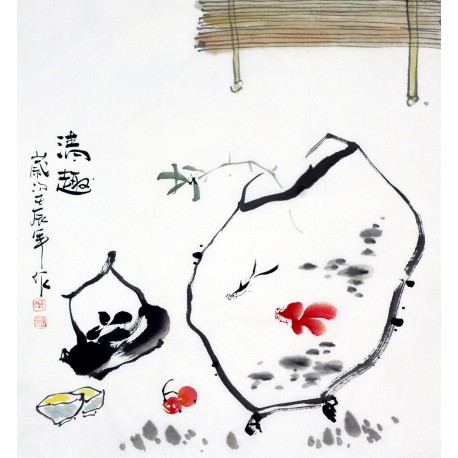 清趣
歲次壬辰年作